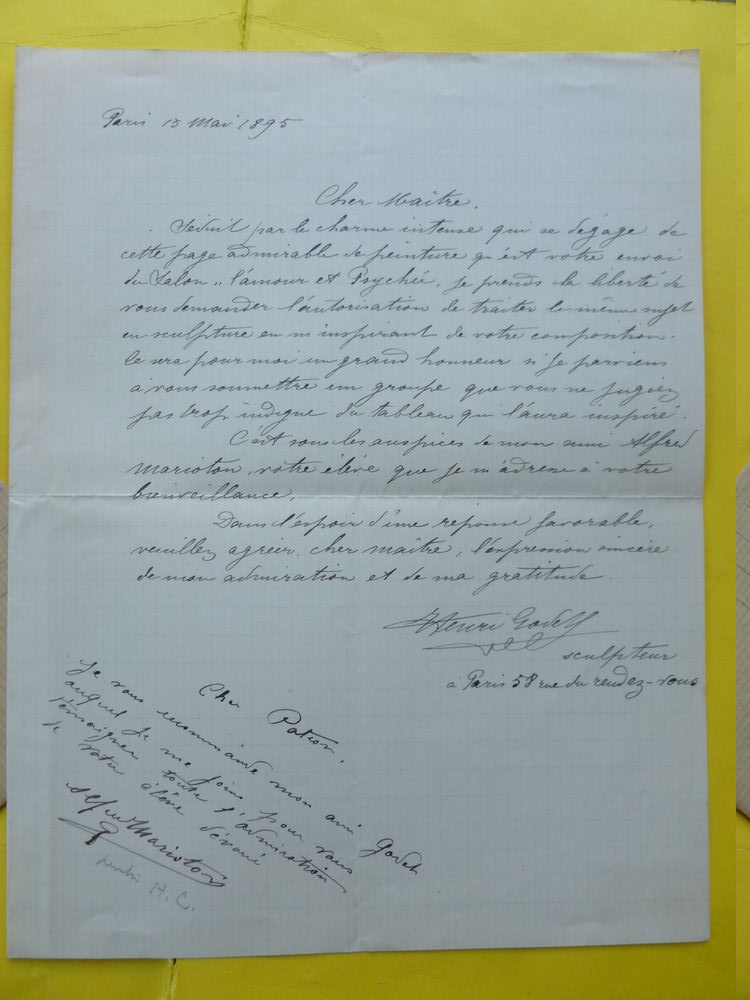 Paris 15 Mai 1895
Cher Maître,
Séduit par le charme intense qui se dégage de
cette page admirable de peinture qu'est votre envoi
du Salon „ l'amour et Psyché, je prends la liberté de
vous demander l'autorisation de traiter le même sujet
en sculpture en m'inspirant de votre composition.
Ce sera pour moi un grand honneur si je parviens
à vous soumettre un groupe que vous ne jugiez
pas trop indigne du tableau qui l'aura inspiré.
C'est sous les auspices de mon ami Alfred
Marioton, votre élève que je m'adresse à votre
bienveillance,
Dans l'espoir d'une réponse favorable,
veuillez agréer, cher maître, l'expression sincère
de mon admiration et de ma gratitude.
Henri Godet
sculpteur
à Paris 58 rue du rendez-vous
Cher Patron,
Je vous recommande mon ami Godet
auquel je me joins pour vous
témoigner toute l'admiration
de votre élève dévoué
Alfred Marioton
H. C.